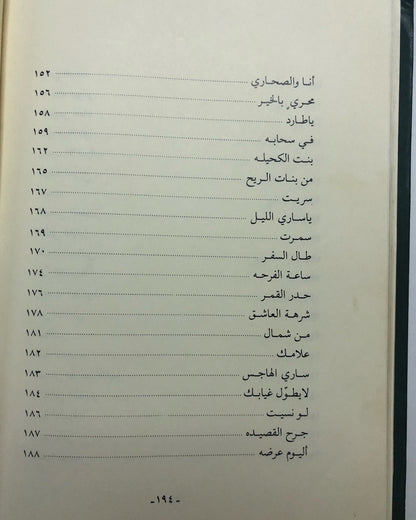 أنا والصحاري ١٥٢
محري بالخير ١٥٦
ياطارد ١٥٨
في سحابه ١٥٩
بنت الكحيله ١٦٢
من بنات الريح ١٦٥
سريت ١٦٧
ياساري الليل ١٦٨
سمرت ١٦٩
طال السفر ١٧٠
ساعة الفرحه ١٧٤
حدر القمر ١٧٦
شرهة العاشق ١٧٨
من شمال ١٨١
علامك ١٨٢
ساري الهاجس ١٨٣
لايطوّل غيابك ١٨٤
لو نسيت ١٨٦
جرح القصيده ١٨٧
أليوم عرضه ١٨٨
-١٩٤-